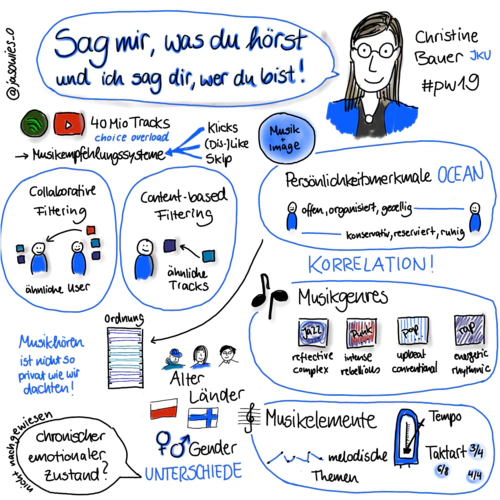 @jasowies_o
Sag mir, was du hörst
und ich sag dir, wer du bist!
Christine
Bauer JKU
#pw19
40 Mio Tracks
choice overload
→ Musikempfehlungssysteme
Klicks
(Dis-)Like
Skip
Musik
+
Image
Collaborative
Filtering
ähnliche User
Content-based
Filtering
ähnliche
Tracks
Persönlichkeitsmerkmale OCEAN
offen, organisiert, gesellig
konservativ, reserviert, ruhig
KORRELATION!
Musikgenres
Jazz
Punk
Pop
Rap
reflective
complex
intense
rebellious
upbeat
conventional
energetic
rhythmic
Ordnung
Musikhören
ist nicht so
privat wie wir
dachten!
Alter
Länder
♀♂ Gender
UNTERSCHIEDE
nicht nachgewiesen
chronischer
emotionaler
Zustand?
Musikelemente
melodische
Themen
Tempo
Taktart 3/4
6/8 4/4